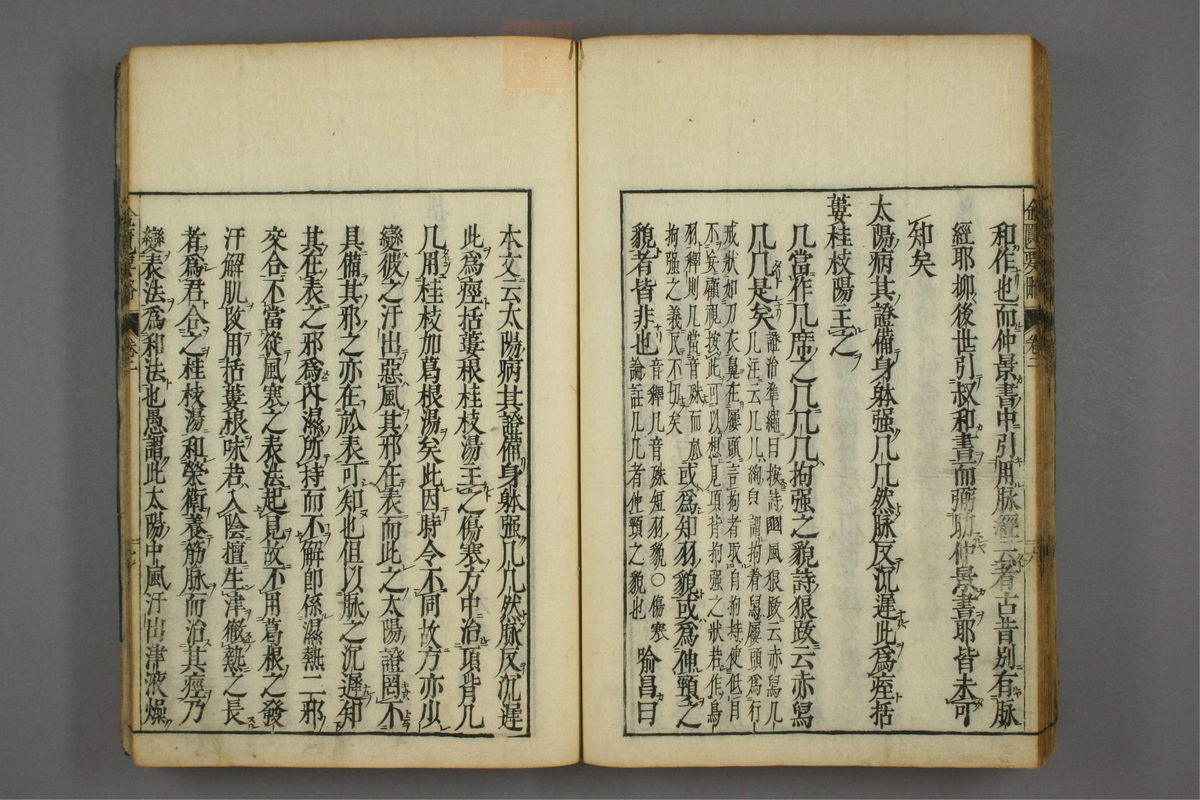 和作也而仲景書中引用脉經云者古昔別有脉
經耶抑後世引叔和書而弼助仲景書耶皆未可
知矣
太陽病其證備身躰强几几然脉反沉遲此爲痙括
蔞桂枝陽王之
几當作几席之几几几拘强之貌詩狼跋云赤舄
几几是矣證治準繩曰按詩豳風狼跋云赤舄几
几注云几几絢皃謂拘着舄屨頭爲行
戒狀如刀衣鼻在屨頭言拘者取自拘持使低目
不妄顧視按此可以想見項背拘强之狀若作鳥
羽釋則几當音殊而
拘强之義反不切矣或爲知羽貌或爲伸頸之
貌者皆非也音釋几音殊短羽貌〇傷寒
論註几几者伸頸之貌也喻昌曰
本文云太陽病其證備身躰强几几然脉反沉遲
此爲痙括蔞根桂枝湯主之傷寒方中治項背几
几用桂枝加葛根湯矣此因時令不同故方亦少
變彼之汗出惡風其邪在表而此之太陽證罔不
具備其邪之亦在於表可知也但以脉之沉遲知
其在表之邪爲內濕所持而不解即係濕熱二邪
交合不當從風寒之表法起見故不用葛根之發
汗解肌改用括蔞根味苦入陰擅生津徹熱之長
者爲君合之桂枝湯和榮衛養筋脉而治其痙乃
變表法爲和法也愚謂此太陽中風汗出津液燥